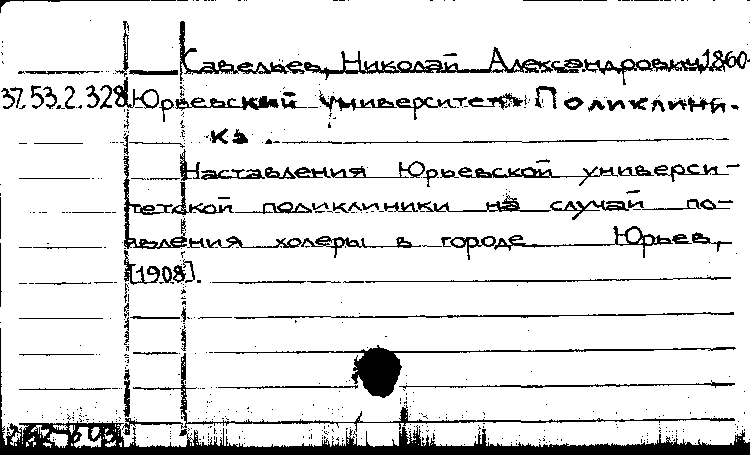 Савельев, Николай Александрович, 1860-
37.53.2.328 Юрьевский университет. Поликлини-
ка.
Наставления Юрьевской универси-
тетской поликлиники на случай по-
явления холеры в городе. Юрьев,
[1908].